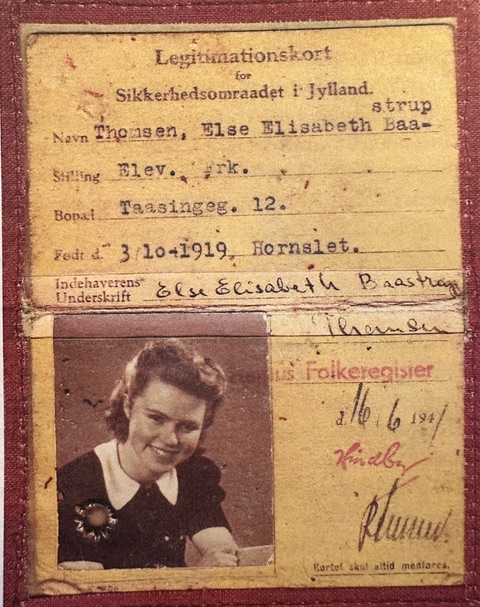 Legitimationskort
for
Sikkerhedsomraadet i Jylland.
strup
Navn Thomsen, Else Elisabeth Baa-
Stilling Elev. Frk.
Bopæl Taasingeg. 12.
Født d. 3/10-1919, Hornslet.
Indehaverens Underskrift Else Elisabeth Baastrup
Thomsen
Folkeregister
d. 16/6 1941
Kortet skal altid medføres.